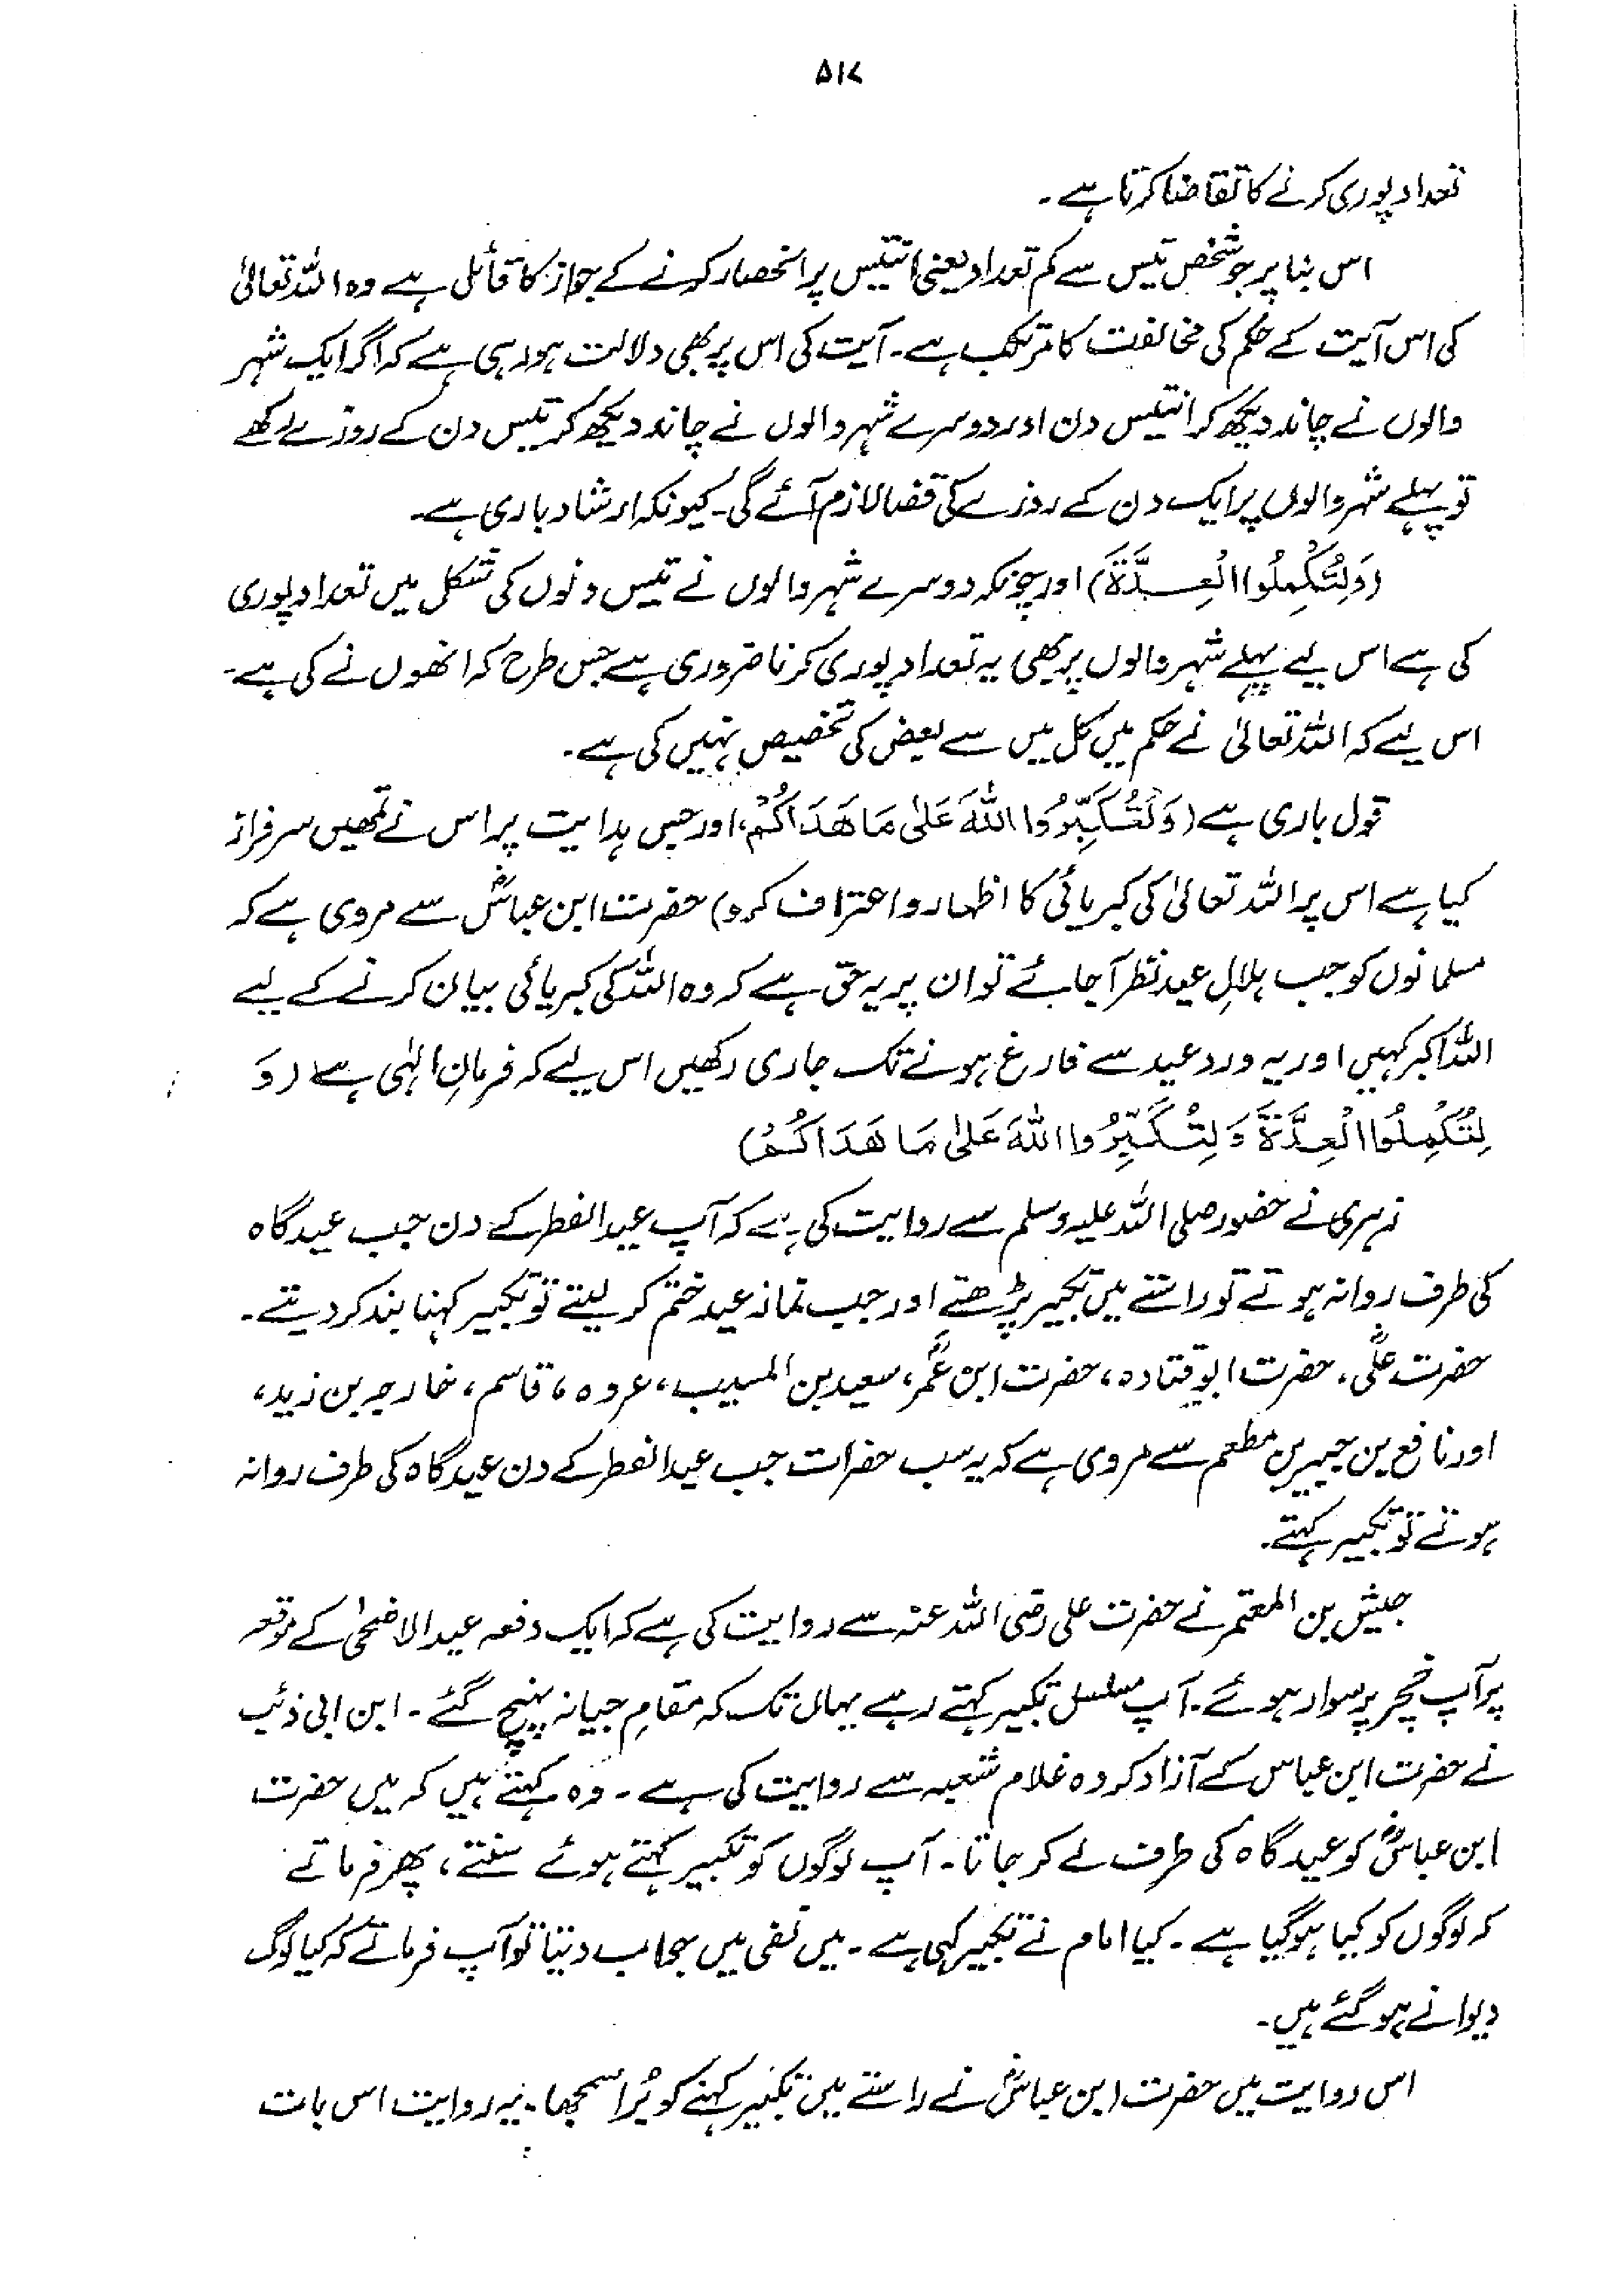 ۵۱۷
تعداد پوری کرنے کا تقاضا کرتا ہے۔
اس بنا پر جو شخص تیس سے کم تعداد یعنی انتیس پر انحصار کرنے کے جواز کا قائل ہے وہ اللہ تعالیٰ
کی اس آیت کے حکم کی مخالفت کا مرتکب ہے۔ آیت کی اس پر بھی دلالت ہو رہی ہے کہ اگر ایک شہر
والوں نے چاند دیکھ کر انتیس دن اور دوسرے شہر والوں نے چاند دیکھ کر تیس دن کے روزے رکھے
تو پہلے شہر والوں پر ایک دن کے روزے کی قضا لازم آئے گی۔ کیونکہ ارشاد باری ہے۔
(وَلِتُكْمِلُوا الْعِدَّةَ) اور چونکہ دوسرے شہر والوں نے تیس دنوں کی شکل میں تعداد پوری
کی ہے اس لیے پہلے شہر والوں پر بھی یہ تعداد پوری کرنا ضروری ہے جس طرح کہ انھوں نے کی ہے۔
اس لیے کہ اللہ تعالیٰ نے حکم میں کل میں سے بعض کی تخصیص نہیں کی ہے۔
قول باری ہے (وَلِتُكَبِّرُوا اللهَ عَلىٰ مَا هَدَاكُمْ، اور جس ہدایت پر اس نے تمھیں سرفراز
کیا ہے اس پر اللہ تعالیٰ کی کبریائی کا اظہار و اعتراف کرو) حضرت ابن عباسؓ سے مروی ہے کہ
مسلمانوں کو جب ہلالِ عید نظر آ جائے تو ان پر یہ حق ہے کہ وہ اللہ کی کبریائی بیان کرنے کے لیے
اللہ اکبر کہیں اور یہ ورد عید سے فارغ ہونے تک جاری رکھیں اس لیے کہ فرمانِ الٰہی ہے (وَ
لِتُكْمِلُوا الْعِدَّةَ وَلِتُكَبِّرُوا اللهَ عَلىٰ مَا هَدَاكُمْ)
زہری نے حضور صلی اللہ علیہ وسلم سے روایت کی ہے کہ آپ عید الفطر کے دن جب عیدگاہ
کی طرف روانہ ہوتے تو راستے میں تکبیر پڑھتے اور جب نماز عید ختم کر لیتے تو تکبیر کہنا بند کر دیتے۔
حضرت علیؓ، حضرت ابوقتادہ، حضرت ابن عمرؓ، سعید بن المسیب، عروہ، قاسم، خارجہ بن زید،
اور نافع بن جبیر بن مطعم سے مروی ہے کہ یہ سب حضرات جب عید الفطر کے دن عیدگاہ کی طرف روانہ
ہوتے تو تکبیر کہتے۔
جیش بن المعتمر نے حضرت علی رضی اللہ عنہ سے روایت کی ہے کہ ایک دفعہ عید الاضحیٰ کے موقعہ
پر آپ خچر پر سوار ہوئے۔ آپ مسلسل تکبیر کہتے رہے یہاں تک کہ مقامِ جبانہ پہنچ گئے۔ ابن ابی ذئب
نے حضرت ابن عباس کے آزاد کردہ غلام شعبہ سے روایت کی ہے۔ وہ کہتے ہیں کہ میں حضرت
ابن عباسؓ کو عیدگاہ کی طرف لے کر جاتا۔ آپ لوگوں کو تکبیر کہتے ہوئے سنتے، پھر فرماتے
کہ لوگوں کو کیا ہو گیا ہے۔ کیا امام نے تکبیر کہی ہے۔ میں نفی میں جواب دیتا تو آپ فرماتے کہ کیا لوگ
دیوانے ہو گئے ہیں۔
اس روایت میں حضرت ابن عباسؓ نے راستے میں تکبیر کہنے کو بُرا سمجھا۔ یہ روایت اس بات